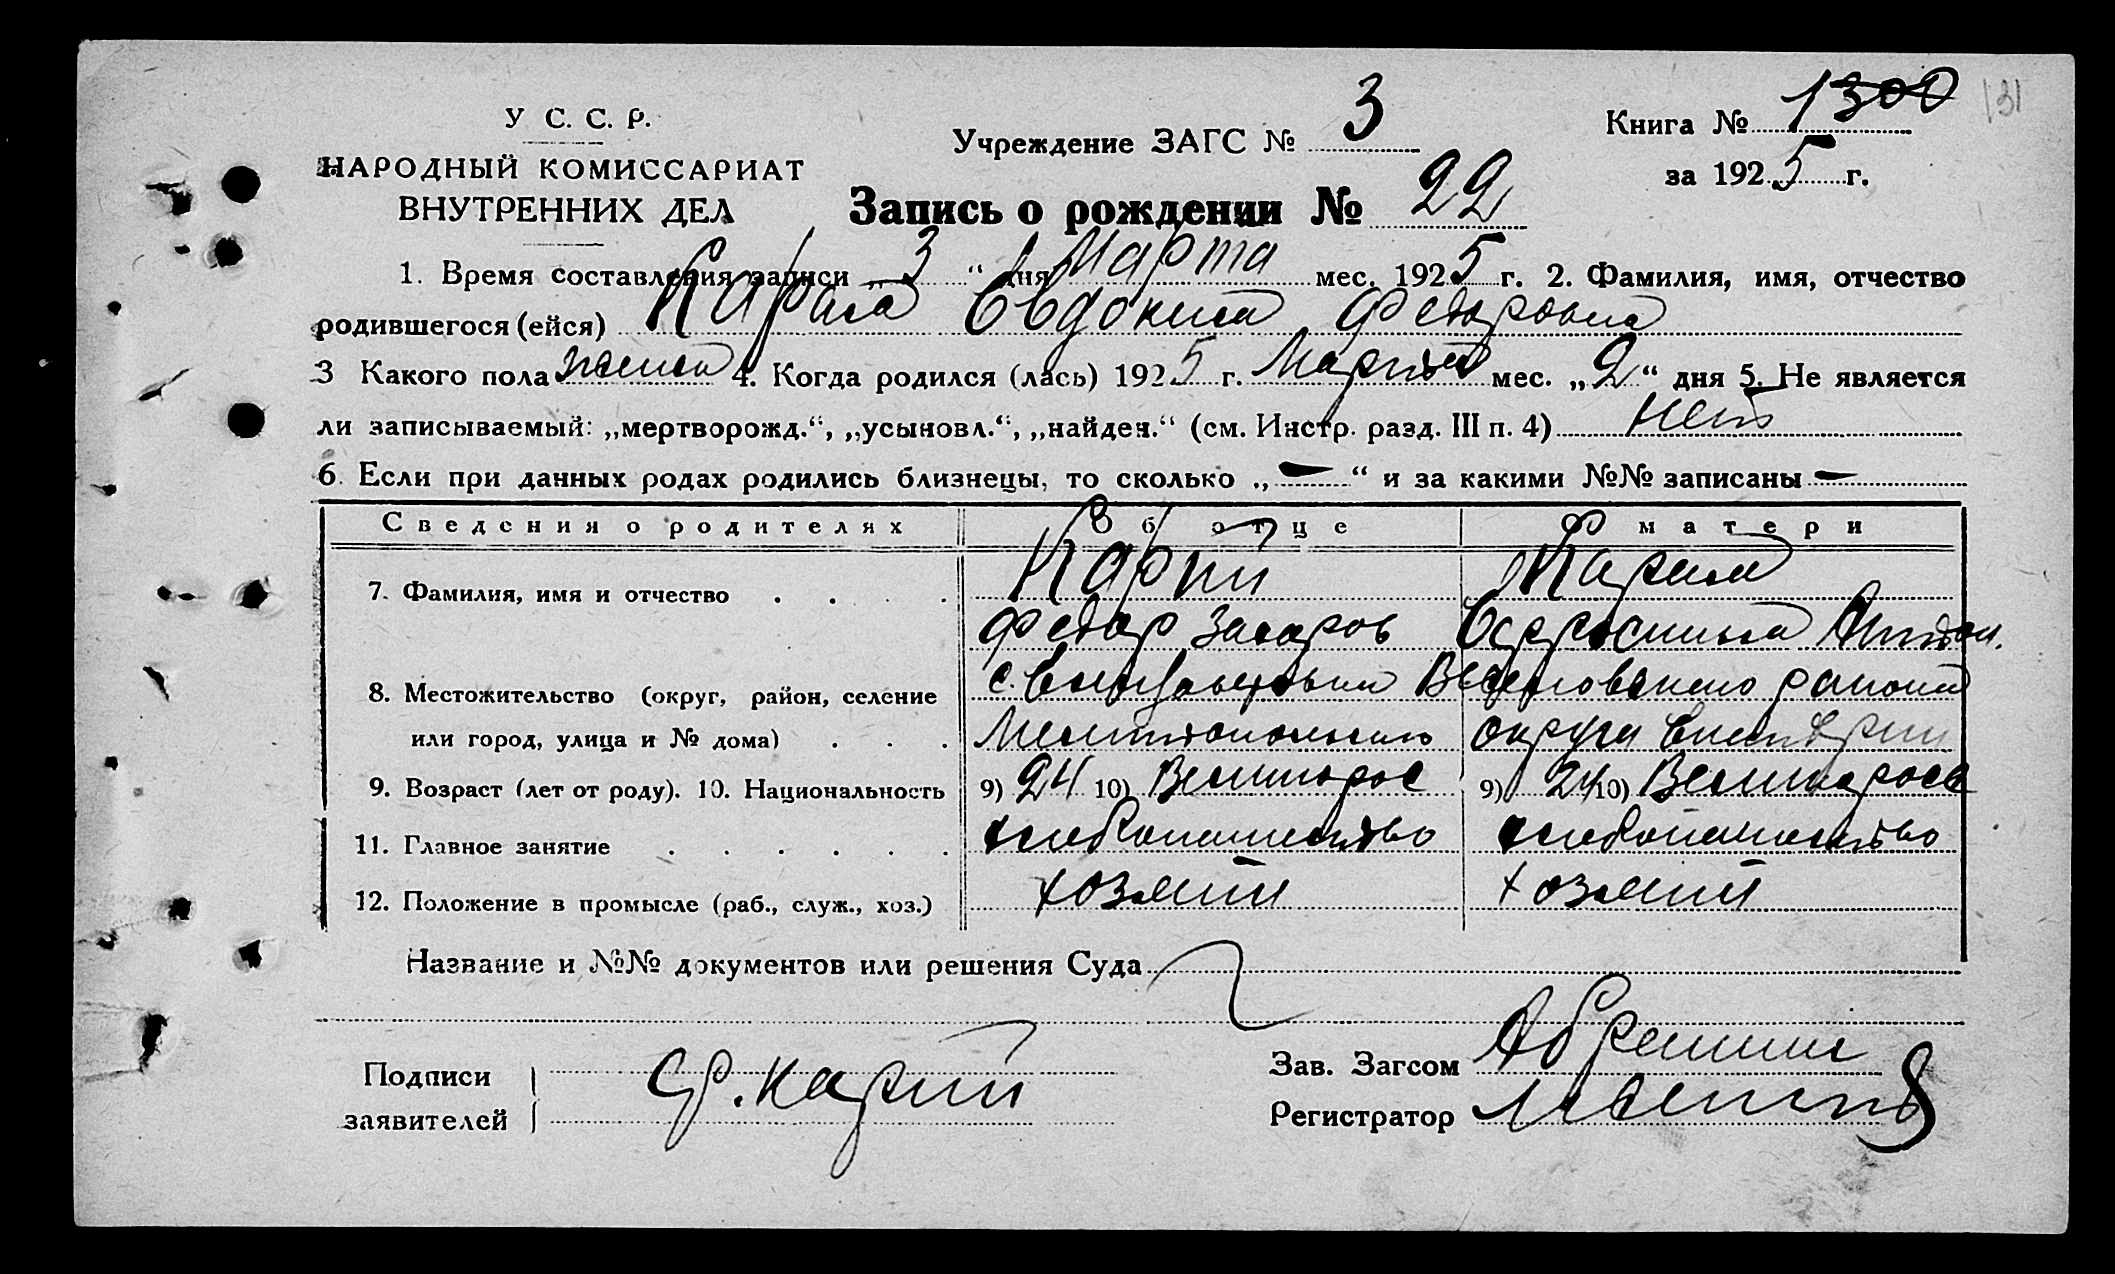 У С. С. Р.
НАРОДНЫЙ КОМИССАРИАТ
ВНУТРЕННИХ ДЕЛ
Учреждение ЗАГС № 3
Книга № 1300
131
за 1925 г.
Запись о рождении № 22
1. Время составления записи „ 3 “ дня Марта мес. 1925 г. 2. Фамилия, имя, отчество
родившегося (ейся) Евдокия Федоровна
3 Какого пола женск 4. Когда родился (лась) 1925 г. Марта мес. „ 2 “ дня 5. Не является
ли записываемый: „мертворожд.“, „усыновл.“, „найден.“ (см. Инстр. разд. III п. 4) нет
6. Если при данных родах родились близнецы, то сколько „ — “ и за какими №№ записаны —
Сведения о родителях Об отце О матери
7. Фамилия, имя и отчество
Федор Захаров
8. Местожительство (округ, район, селение района
или город, улица и № дома) Мелитопольского округа
9. Возраст (лет от роду). 10. Национальность 9) 24 10) Великорос 9) 24 10)
11. Главное занятие хлебопашество хлебопашество
12. Положение в промысле (раб., служ., хоз.) хозяин хозяин
Название и №№ документов или решения Суда
Подписи
заявителей
Зав. Загсом
Регистратор